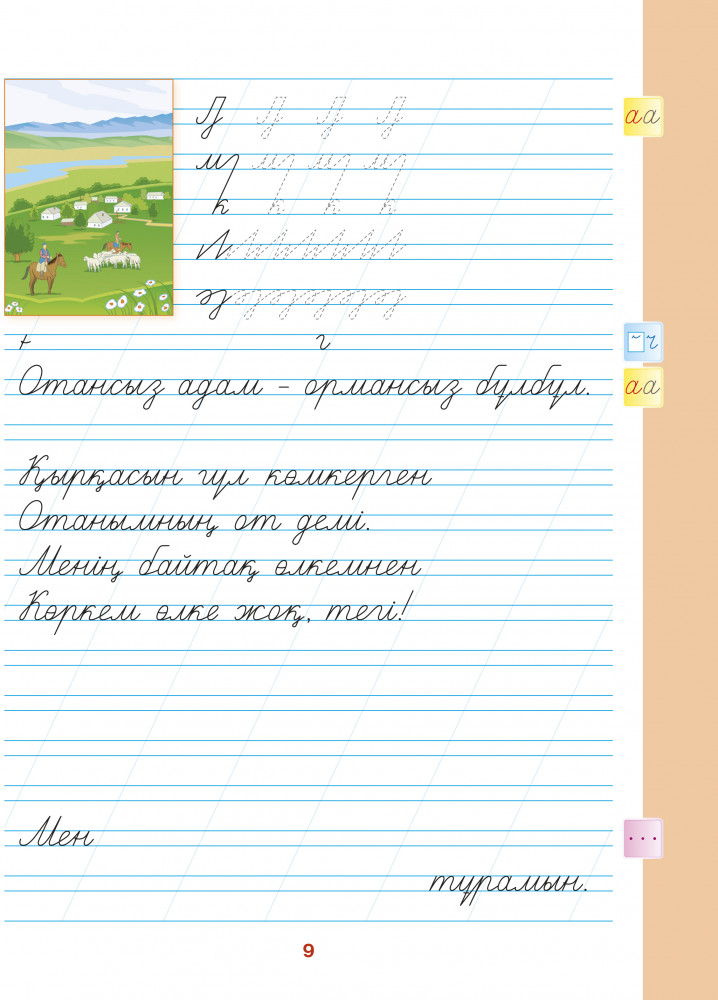 м
к
Отансыз адам – ормансыз бұлбұл.
Қырқасын гүл көмкерген
Отанымның от демі.
Менің байтақ өлкемнен
Көркем өлке жоқ, тегі!
Мен
тұрамын.
9
аа
ч
аа
...